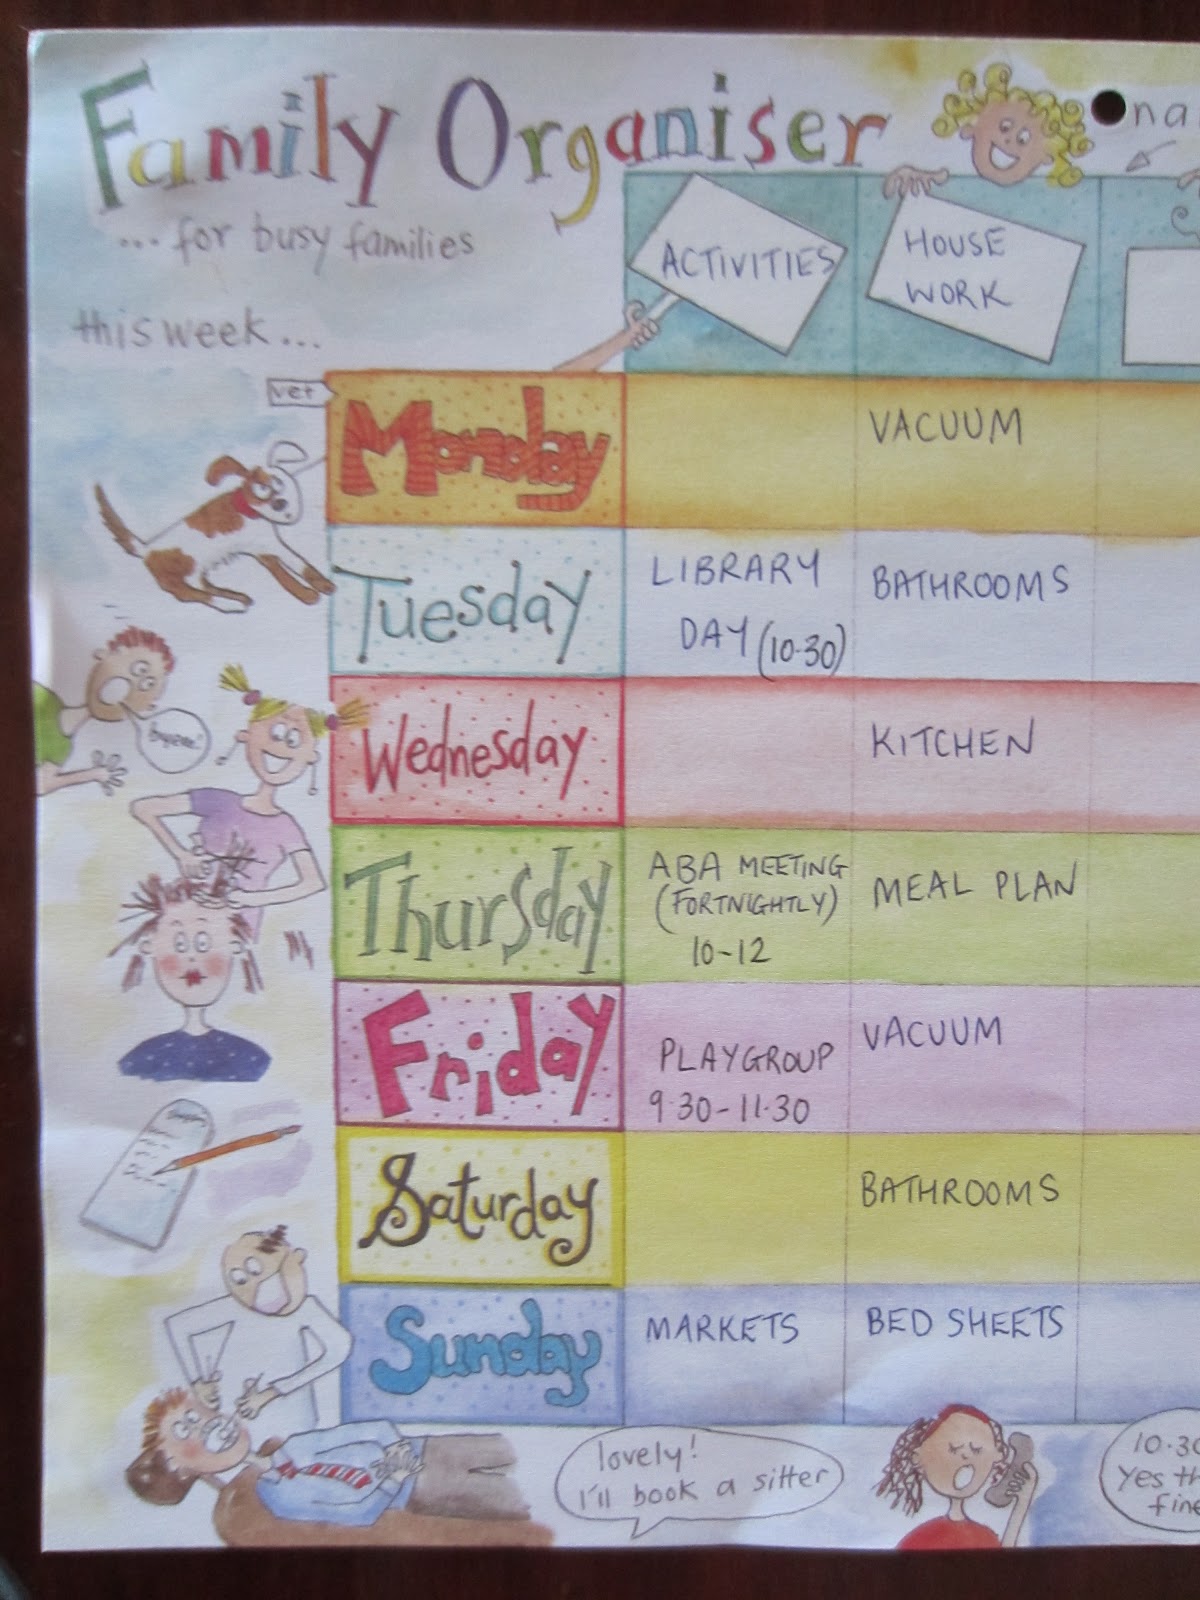 Family Organiser
na
... for busy families
this week ...
ACTIVITIES
HOUSE
WORK
vet
Monday
VACUUM
Tuesday
LIBRARY
DAY (10.30)
BATHROOMS
Wednesday
KITCHEN
Thursday
ABA MEETING
(FORTNIGHTLY)
10-12
MEAL PLAN
Friday
PLAYGROUP
9.30-11.30
VACUUM
Saturday
BATHROOMS
Sunday
MARKETS
BED SHEETS
lovely!
I'll book a sitter
10.30
Yes th
fine